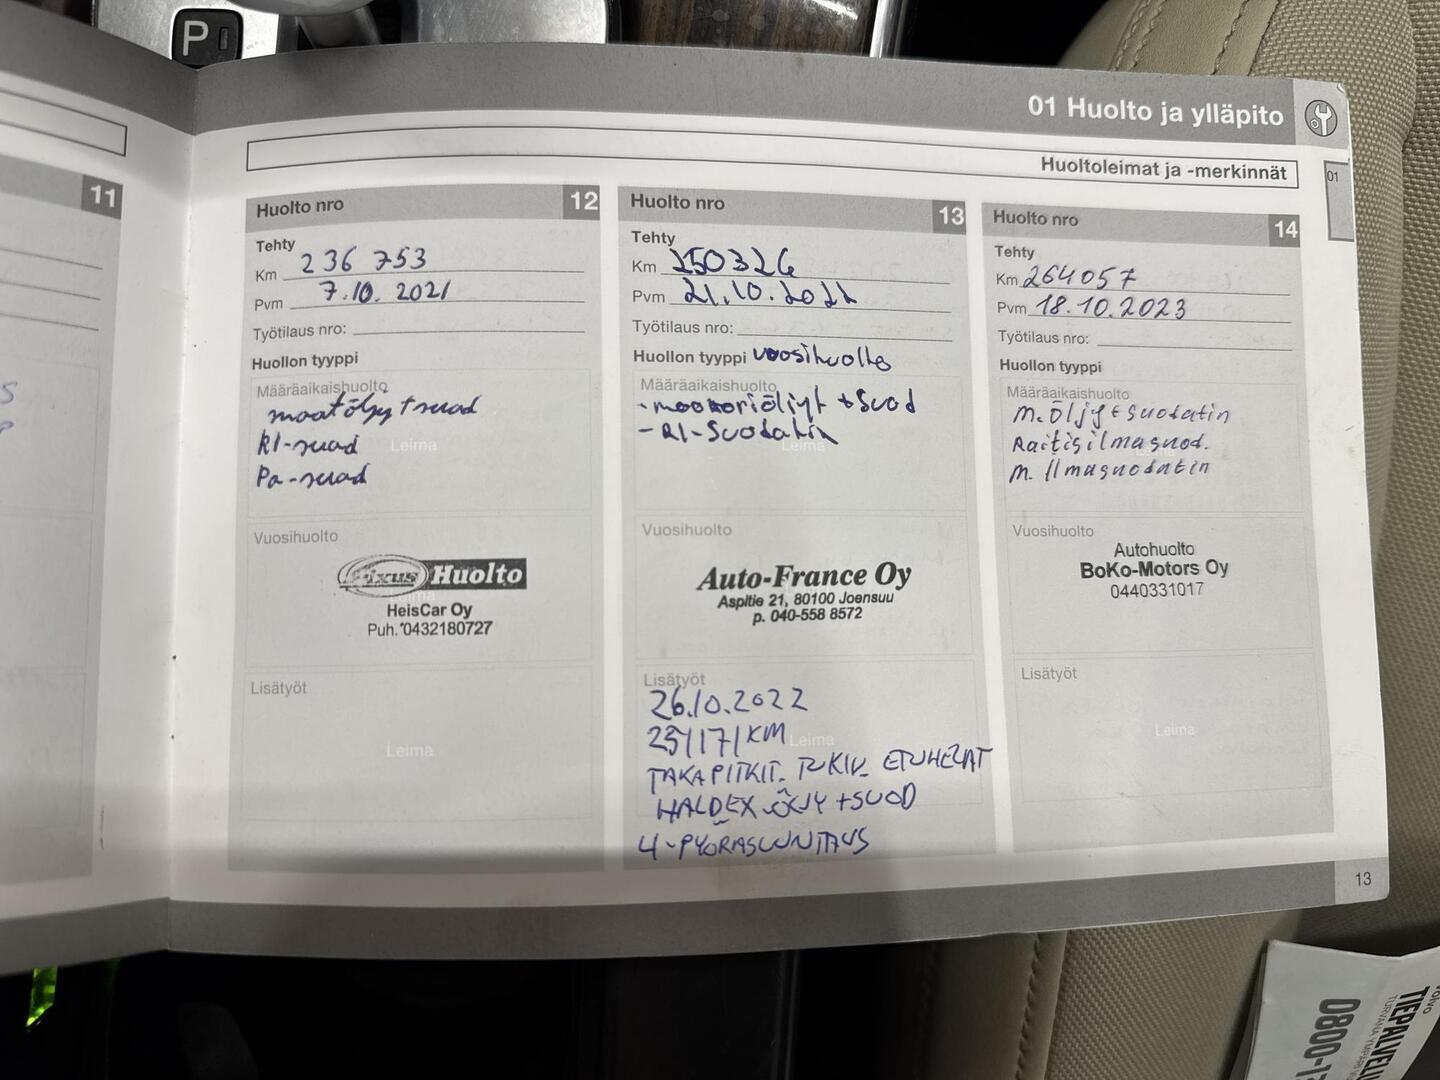 P
01 Huolto ja ylläpito
Huoltoleimat ja -merkinnät
01
11
Huolto nro 12
Tehty
Km 236 753
Pvm 7.10. 2021
Työtilaus nro:
Huollon tyyppi
Määräaikaishuolto
moatöljy + suod
RI-suod
Pa-suod
Leima
Vuosihuolto
Fixus Huolto
Leima
HeisCar Oy
Puh. 0432180727
Lisätyöt
Leima
Huolto nro 13
Tehty
Km 250326
Pvm 21.10.2022
Työtilaus nro:
Huollon tyyppi vuosihuolto
Määräaikaishuolto
- moottoriöljyt + suod
- RI-Suodatin
Leima
Vuosihuolto
Auto-France Oy
Aspitie 21, 80100 Joensuu
p. 040-558 8572
Lisätyöt
26.10.2022
251171 KM
Leima
TAKAPITKIT. TUKIV. ETUHELAT
HALDEX ÖLJY + SUOD
4-PYÖRÄSUUNTAUS
Huolto nro 14
Tehty
Km 264057
Pvm 18.10.2023
Työtilaus nro:
Huollon tyyppi
Määräaikaishuolto
M. Öljy + suodatin
Raitisilmasuod.
M. Ilmasuodatin
Vuosihuolto
Autohuolto
BoKo-Motors Oy
0440331017
Lisätyöt
Leima
13
Volvo
TIEPALVELU
0800-1